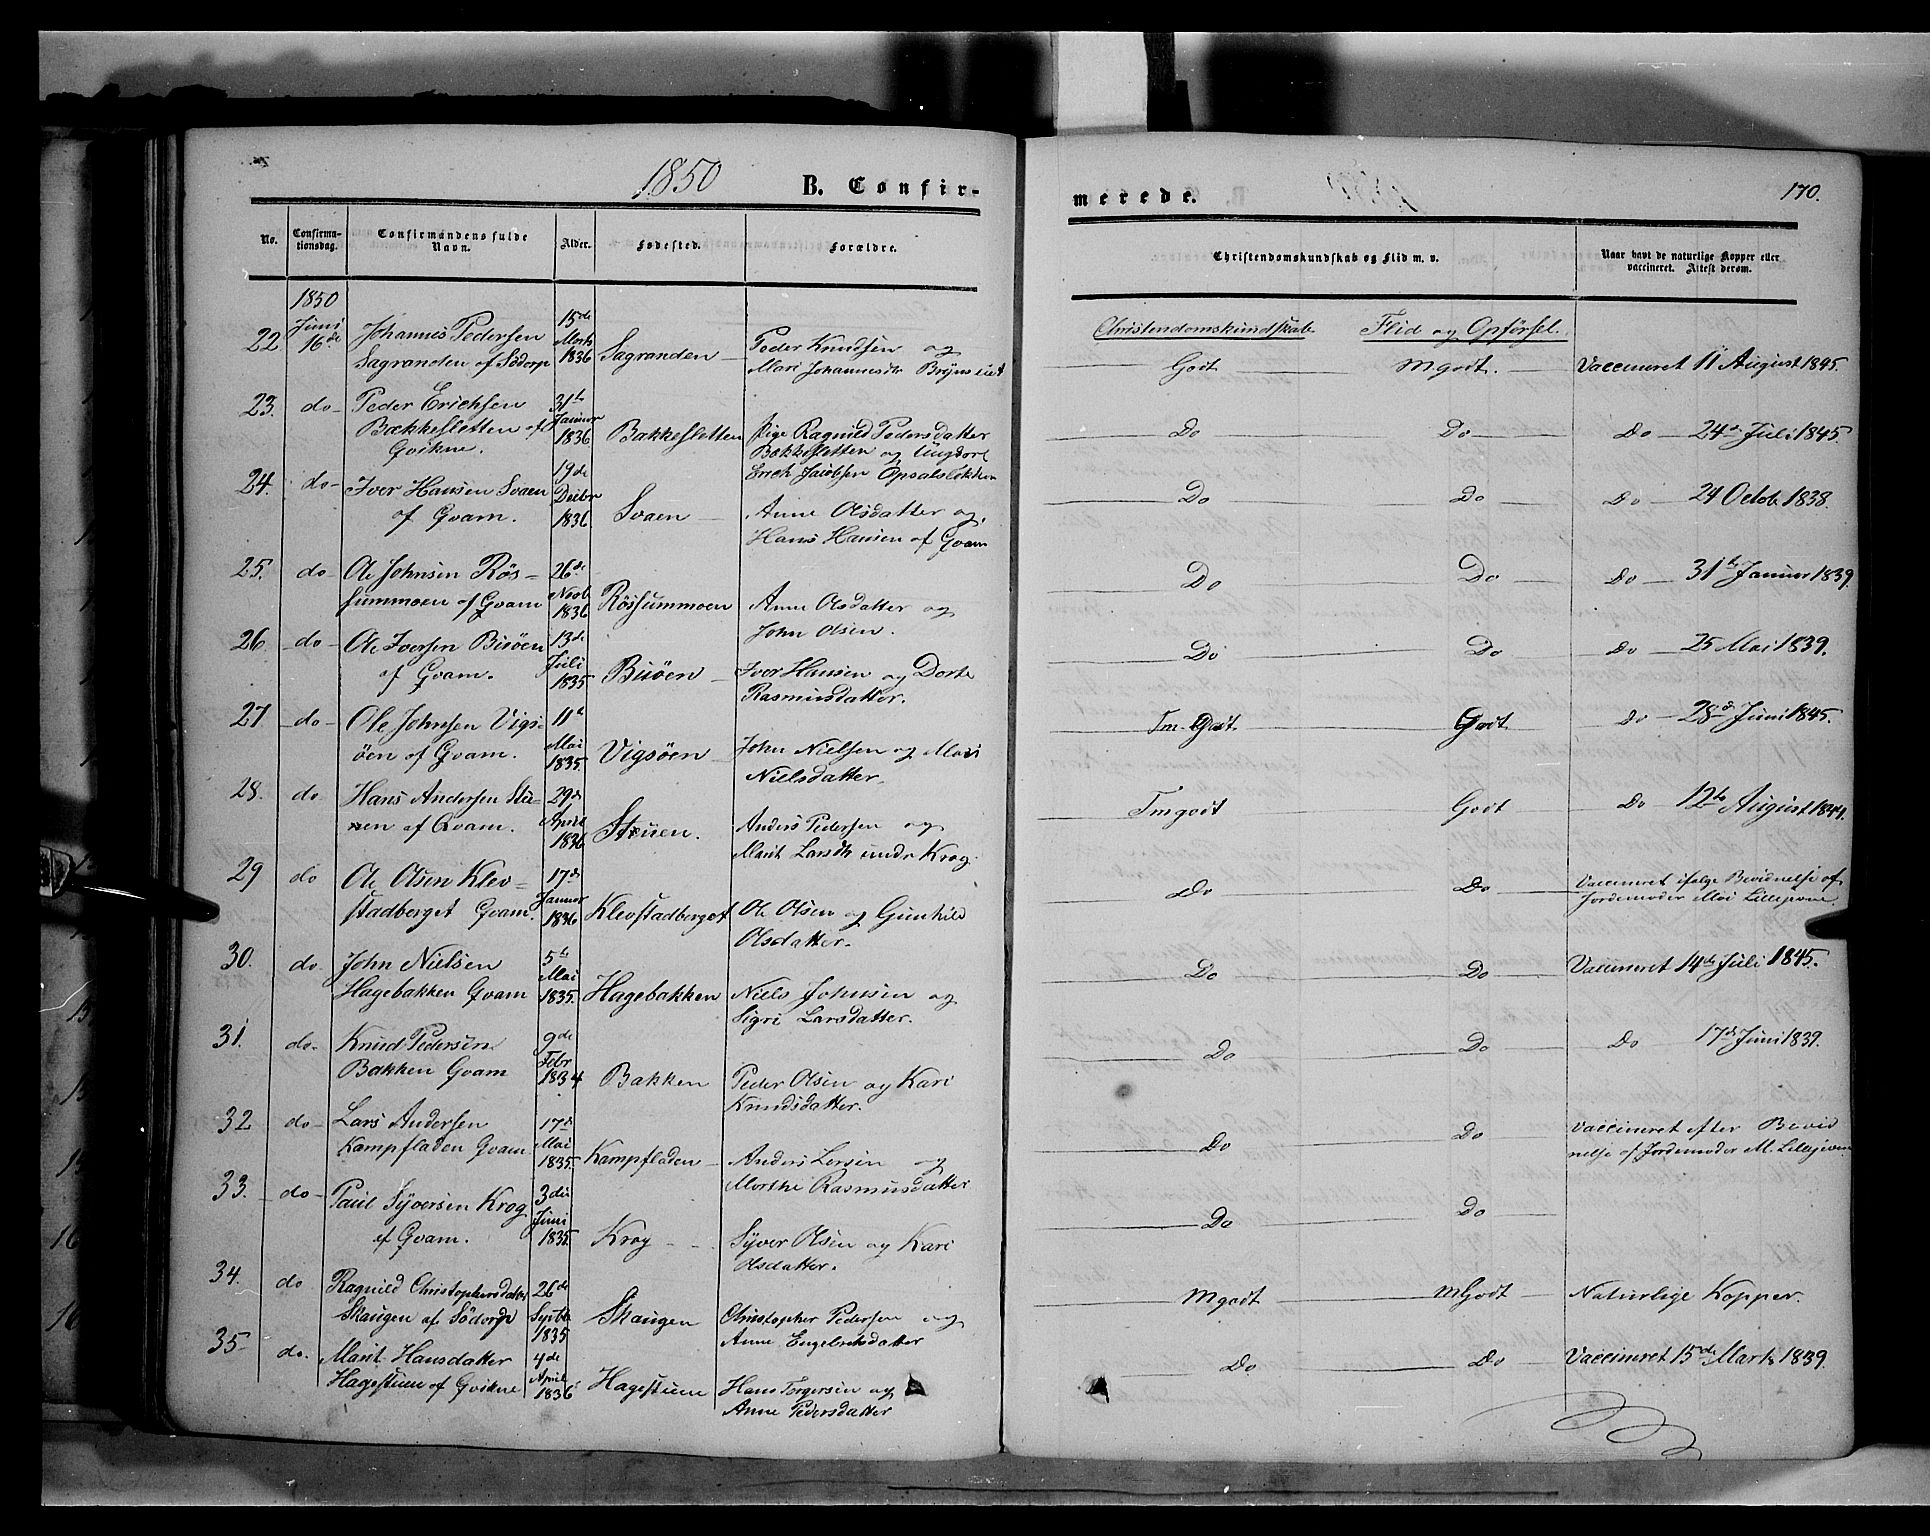 1850 B. Confirmerede. 170.
No. Confirmationsdag. Confirmandens fulde Navn. Alder. Fødested. Forældre. Christendomskundskab og Flid m. v. Naar havt de naturlige Kopper eller vaccineret. Attest derom.
1850
Christendomskundskab Flid og Opførsel.
22 Juni 16de Johannes Pedersen 15de Marts 1836 Sagranden Peder Knudsen og Godt Mgodt. Vaccineret 11 August 1845.
Sagranden af Sødorp Mari Johannesdtr
23. do Peder Erichsen 31te Januar 1836 Bakkesletten Pige Ragnild Pedersdatter Do Do Do 24de Juli 1845.
Bækkesletten af Bækkesletten og Ungdort
Qvikne. Erich Jacobsen Opsalsløkken
24. do Iver Hansen Svaen 19de Decbr 1836. Svaen Anne Olsdatter og Do Do Do 24 Octob. 1838.
af Qvam. Hans Hansen af Qvam
25. do Ole Johnsen Røs- 26de Novb 1836 Røssummoen Anne Olsdatter og Do Do Do 31te Januar 1839
summoen af Qvam John Olsen.
26 do Ole Iversen Bisøen 13de Juli 1835 Bisøen Iver Hansen og Dorte Do Do Do 25 Mai 1839.
af Qvam. Rasmusdatter.
27 do Ole Johnsen Vigs- 11te Mai 1835. Vigsøen John Nielsen og Mari Tm. Godt. Godt. Do 28de Juni 1845.
øen af Qvam. Nielsdatter.
28. do Hans Andersen Stu- 29de April 1836 Stuen. Anders Pedersen og Tmgodt Godt Do 12te August 1844.
en af Qvam. Marit Larsdtr under Krog.
29 do Ole Olsen Klev- 17de Januar 1836 Klevstadberget Ole Olsen og Gunhild Do Do Vaccineret ifølge Bevidnelse af
stadberget Qvam. Olsdatter. Jordemoder
30. do. John Nielsen 5te Mai 1835. Hagebakken Niels Johnsen og Do Do Vaccineret 14de Juli 1845.
Hagebakken Qvam Sigri Larsdatter.
31. do. Knud Pedersen 9de Febr 1834 Bakken Peder Olsen og Kari Do Do Do 17de Juni 1839.
Bakken Qvam Knudsdatter.
32 do Lars Andersen 17de Mai 1835. Kampfladen Anders Larsen og Do Do Vaccineret efter Bevid
Kampfladen Qvam Marthe Rasmusdatter nelse af Jordemoder M.
33. do Paul Syversen Krog 3die Juni 1835. Krog Syver Olsen og Kari Do Do
af Qvam. Olsdatter.
34. do Ragnild Christophersdatter 26de Septbr 1835 Skaugen Christopher Pedersen og Mgodt MGodt Naturlige Kopper.
Skaugen af Sødorp Anne Engebretsdatter
35 do. Marit Hansdatter 4de April 1836 Hagestuene Hans Torgersen og Do Do Vaccineret 15de Marts 1839.
Hagestuen af Qvikne Anne Pedersdatter